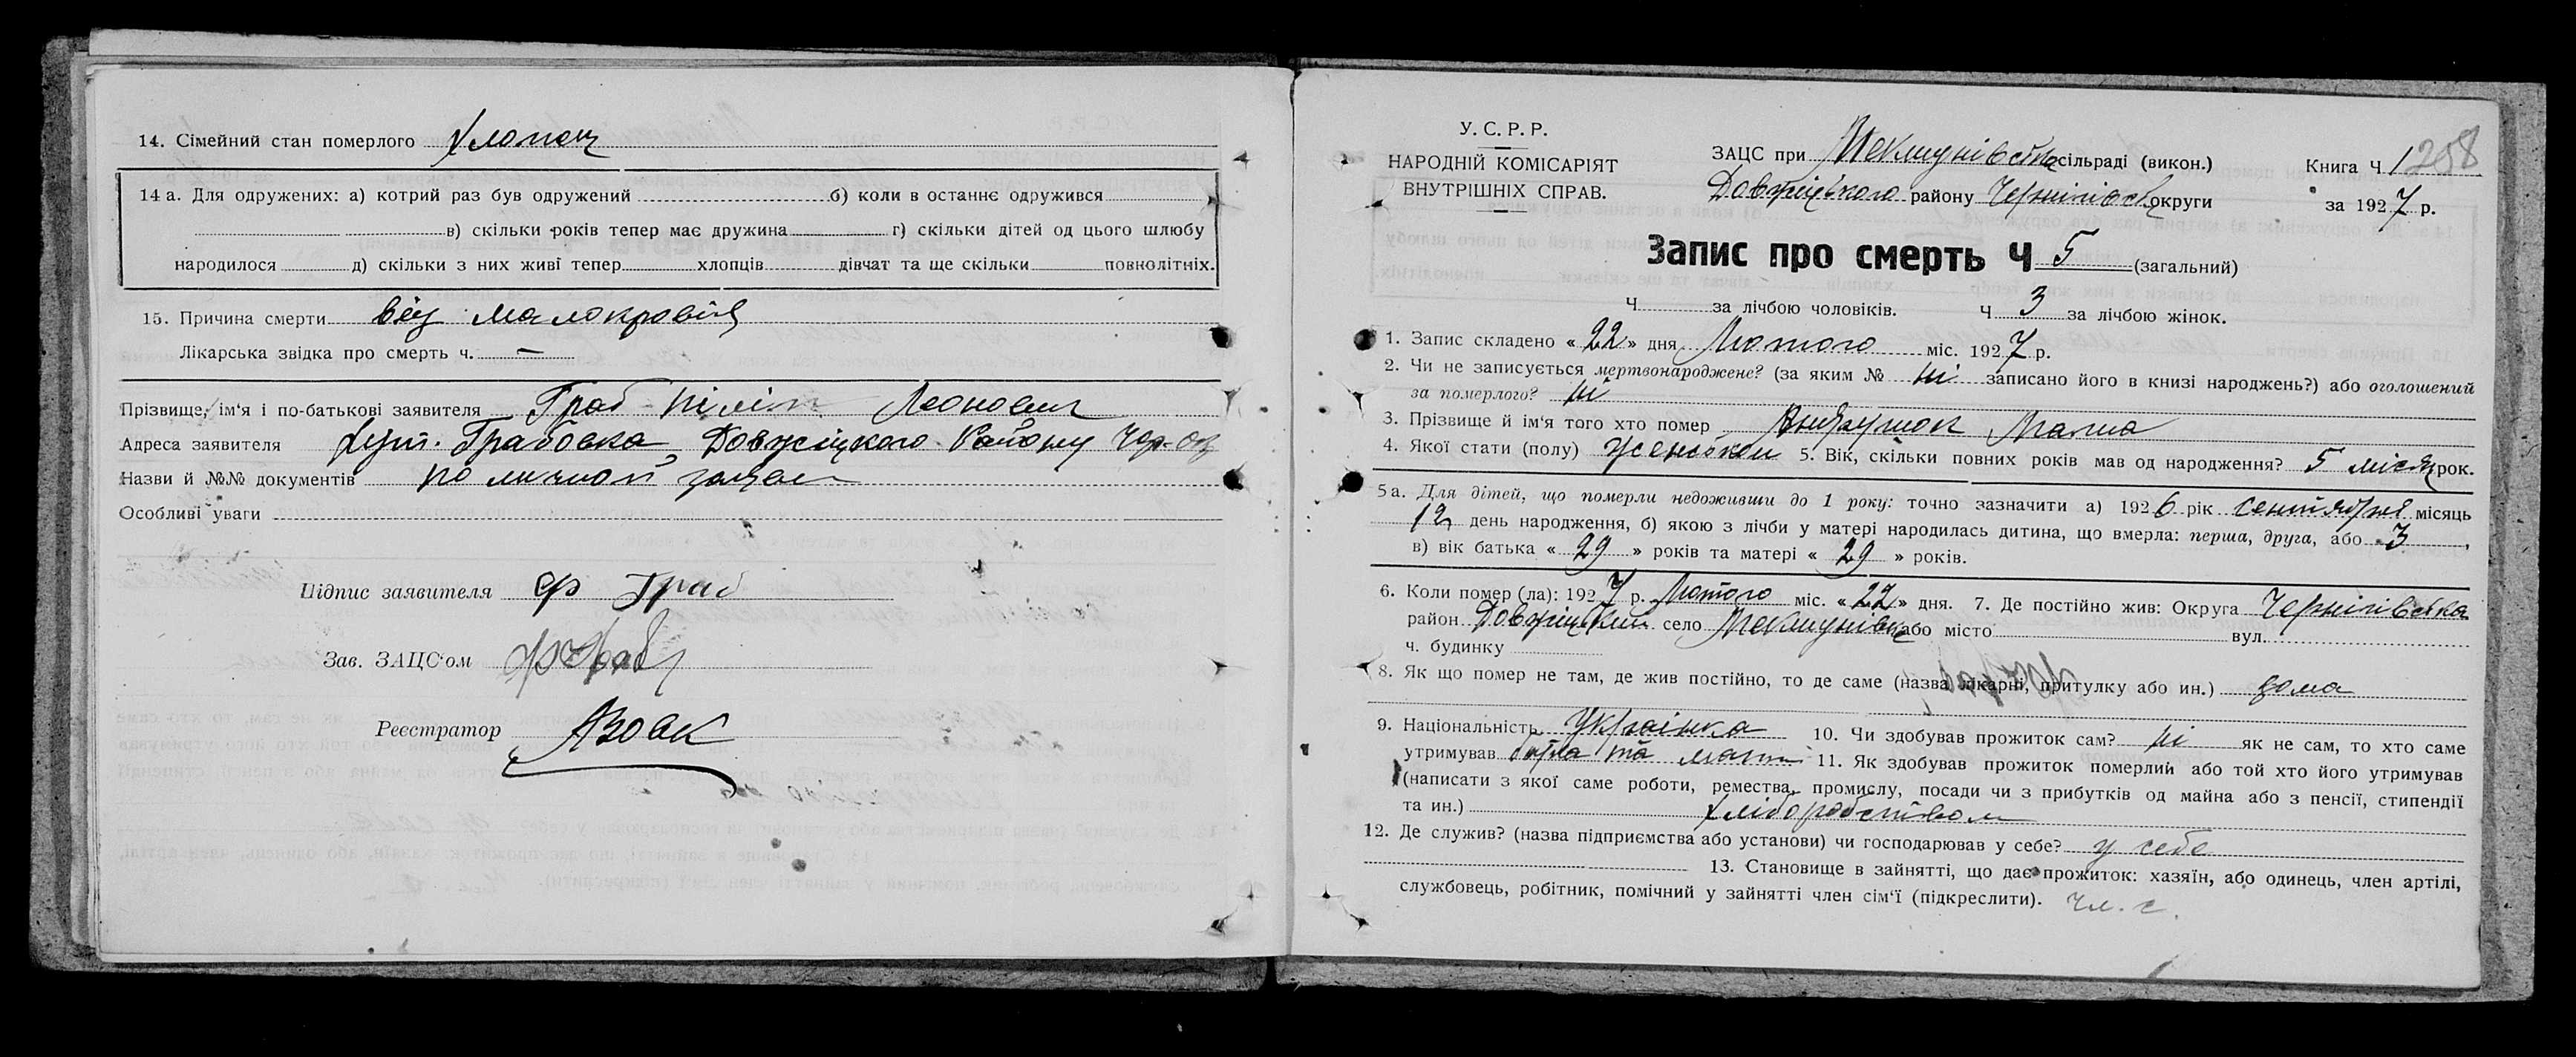 14. Сімейний стан померлого хлопец
14 а. Для одружених: а) котрий раз був одружений б) коли в останнє одружився
в) скільки років тепер має дружина г) скільки дітей од цього шлюбу
народилося д) скільки з них живі тепер хлопців дівчат та ще скільки повнолітніх.
15. Причина смерти від малокровія
Лікарська звідка про смерть ч. —
Прізвище, ім'я і по-батькові заявителя Граб Піліп
Адреса заявителя хут. Грабовка Довжицкого Району Чер-ок
Назви й №№ документів по личной
Особливі уваги
Підпис заявителя Ф Граб
Зав. ЗАЦС'ом ФГраб
Реєстратор
У. С. Р. Р.
НАРОДНІЙ КОМІСАРІЯТ
ВНУТРІШНІХ СПРАВ.
ЗАЦС при сільраді (викон.)
Довжицького району Чернігівськ округи
Книга Ч 1 258
за 1927 р.
Запис про смерть Ч 5 (загальний)
Ч за лічбою чоловіків. Ч 3 за лічбою жінок.
1. Запис складено «22» дня Лютого міс. 1927 р.
2. Чи не записується мертвонароджене? (за яким № ні записано його в книзі народжень?) або оголошений
за померлого? ні
3. Прізвище й ім'я того хто помер
4. Якої стати (полу) женской 5. Вік, скільки повних років мав од народження? 5 місяц рок.
5 а. Для дітей, що померли недоживши до 1 року: точно зазначити а) 1926 рік сентября місяць
12 день народження, б) якою з лічби у матері народилась дитина, що вмерла: перша, друга, або 3,
в) вік батька «29» років та матері «29» років.
6. Коли помер (ла): 1927 р. Лютого міс. «22» дня. 7. Де постійно жив: Округа Чернігівська
район Довжицький село або місто вул.
ч. будинку
8. Як що помер не там, де жив постійно, то де саме (назва лікарні, притулку або ин.) дома
9. Національність Українка 10. Чи здобував прожиток сам? ні як не сам, то хто саме
утримував та мати 11. Як здобував прожиток померлий або той хто його утримував
(написати з якої саме роботи, ремества, промислу, посади чи з прибутків од майна або з пенсії, стипендії
та ин.) хліборобством
12. Де служив? (назва підприємства або установи) чи господарював у себе? у себе
13. Становище в зайнятті, що дає прожиток: хазяїн, або одинець, член артілі,
службовець, робітник, помічний у зайнятті член сім'ї (підкреслити). чл. с.